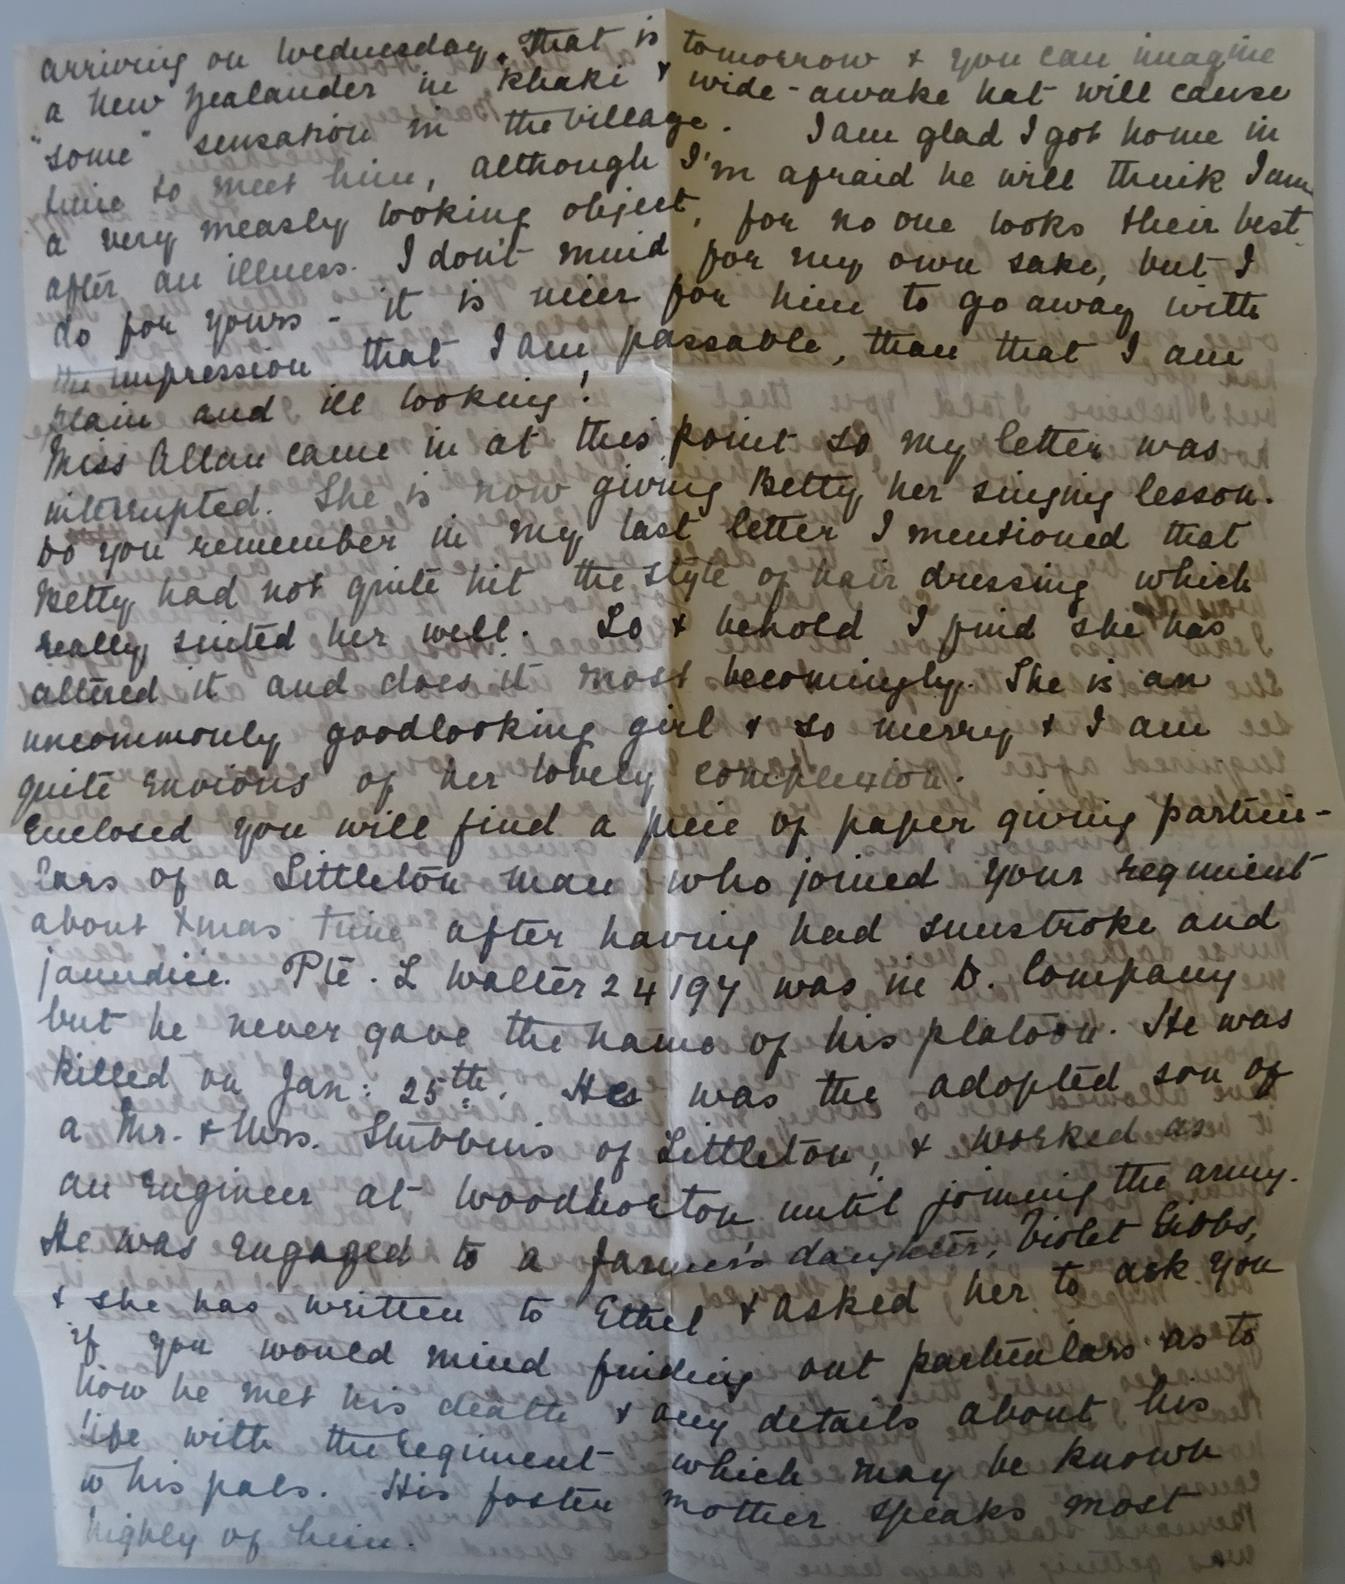 arriving on Wednesday. That is tomorrow & you can imagine
a New Zealander in khaki & wide-awake hat will cause
"some" sensation in the village. I am glad I got home in
time to meet him, although I'm afraid he will think I am
a very measly looking object, for no one looks their best
after an illness. I don't mind for my own sake, but I
do for yours - it is nicer for him to go away with
the impression that I am passable, than that I am
plain and ill looking!
Miss Allan came in at this point so my letter was
interrupted. She is now giving Betty her singing lesson.
Do you remember in my last letter I mentioned that
Betty had not quite hit the style of hair dressing which
really suited her well. Lo & behold I find she has
altered it and does it most becomingly. She is an
uncommonly goodlooking girl & so merry & I am
quite envious of her lovely complexion.
Enclosed you will find a piece of paper giving particu-
lars of a Littleton man who joined your regiment
about Xmas time after having had sunstroke and
jaundice. Pte. L Walter 24197 was in D. Company
but he never gave the name of his platoon. He was
killed on Jan: 25th. He was the adopted son of
a Mr. & Mrs. Stubbins of Littleton, & worked as
an engineer at Woodnorton until joining the army.
He was engaged to a farmer's daughter, Violet Gibbs,
& she has written to Ethel & asked her to ask you
if you would mind finding out particulars as to
how he met his death & any details about his
life with the regiment which may be known
to his pals. His foster mother speaks most
highly of him.